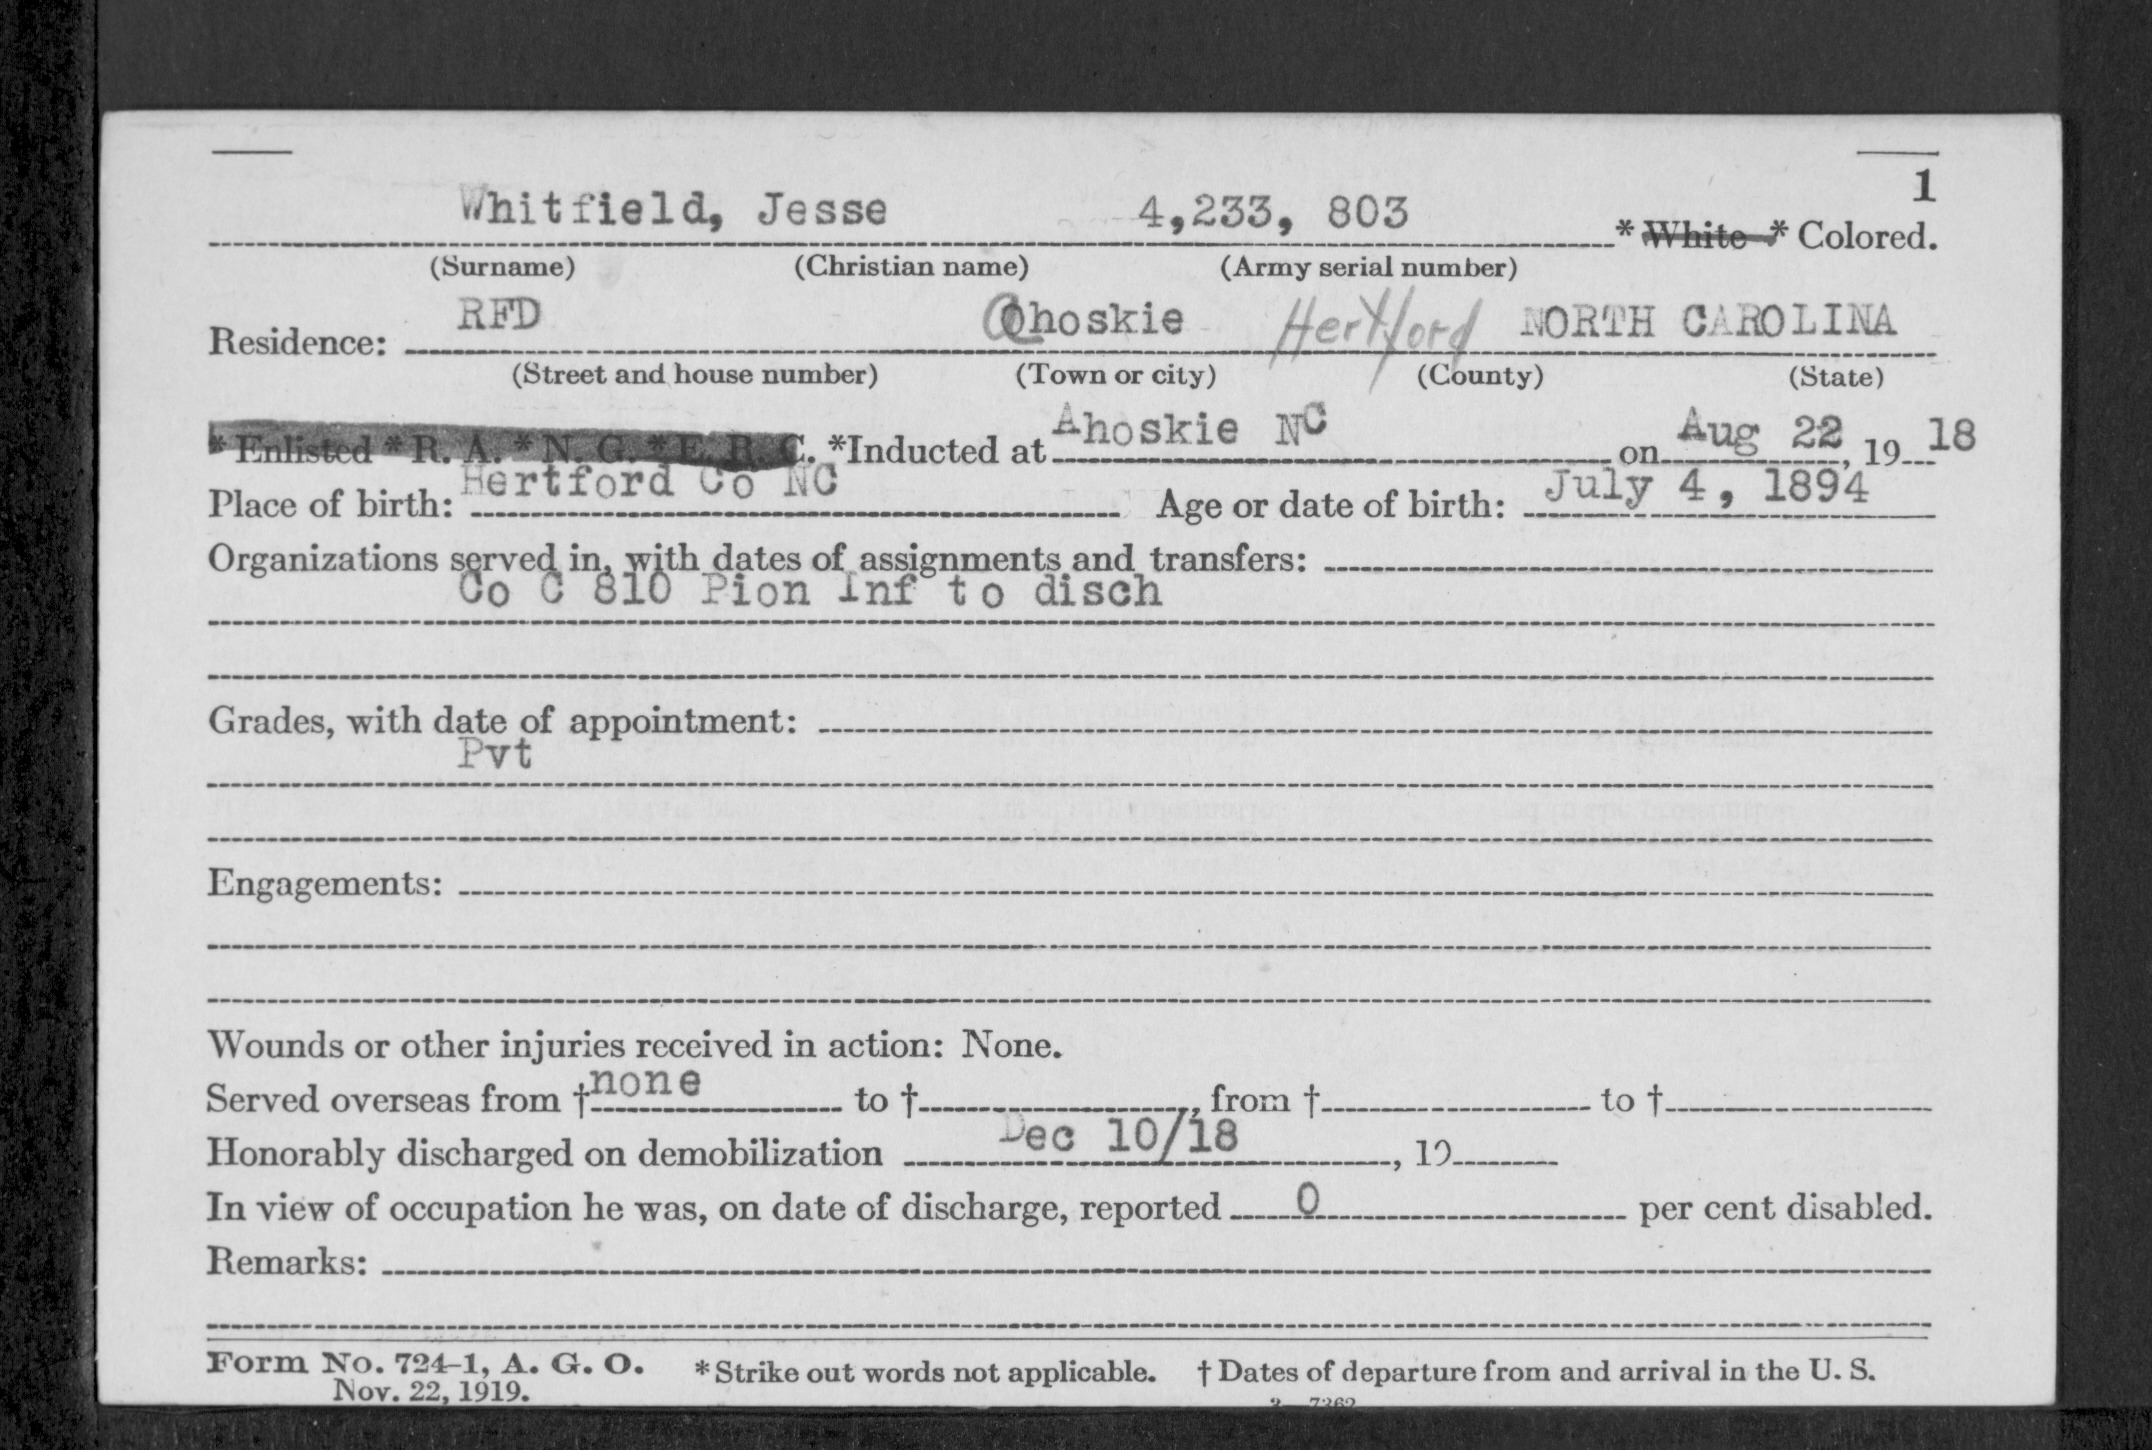 1
Whitfield, Jesse 4,233, 803 * White * Colored.
(Surname) (Christian name) (Army serial number)
Residence: RFD Ahoskie Hertford NORTH CAROLINA
(Street and house number) (Town or city) (County) (State)
* Enlisted * R. A. * N. G. * E. R. C. *Inducted at Ahoskie NC on Aug 22, 19 18
Place of birth: Hertford Co NC Age or date of birth: July 4, 1894
Organizations served in, with dates of assignments and transfers:
Co C 810 Pion Inf to disch
Grades, with date of appointment:
Pvt
Engagements:
Wounds or other injuries received in action: None.
Served overseas from † none to † , from † to †
Honorably discharged on demobilization Dec 10/18 , 19
In view of occupation he was, on date of discharge, reported 0 per cent disabled.
Remarks:
Form No. 724-1, A. G. O. * Strike out words not applicable. † Dates of departure from and arrival in the U. S.
Nov. 22, 1919.